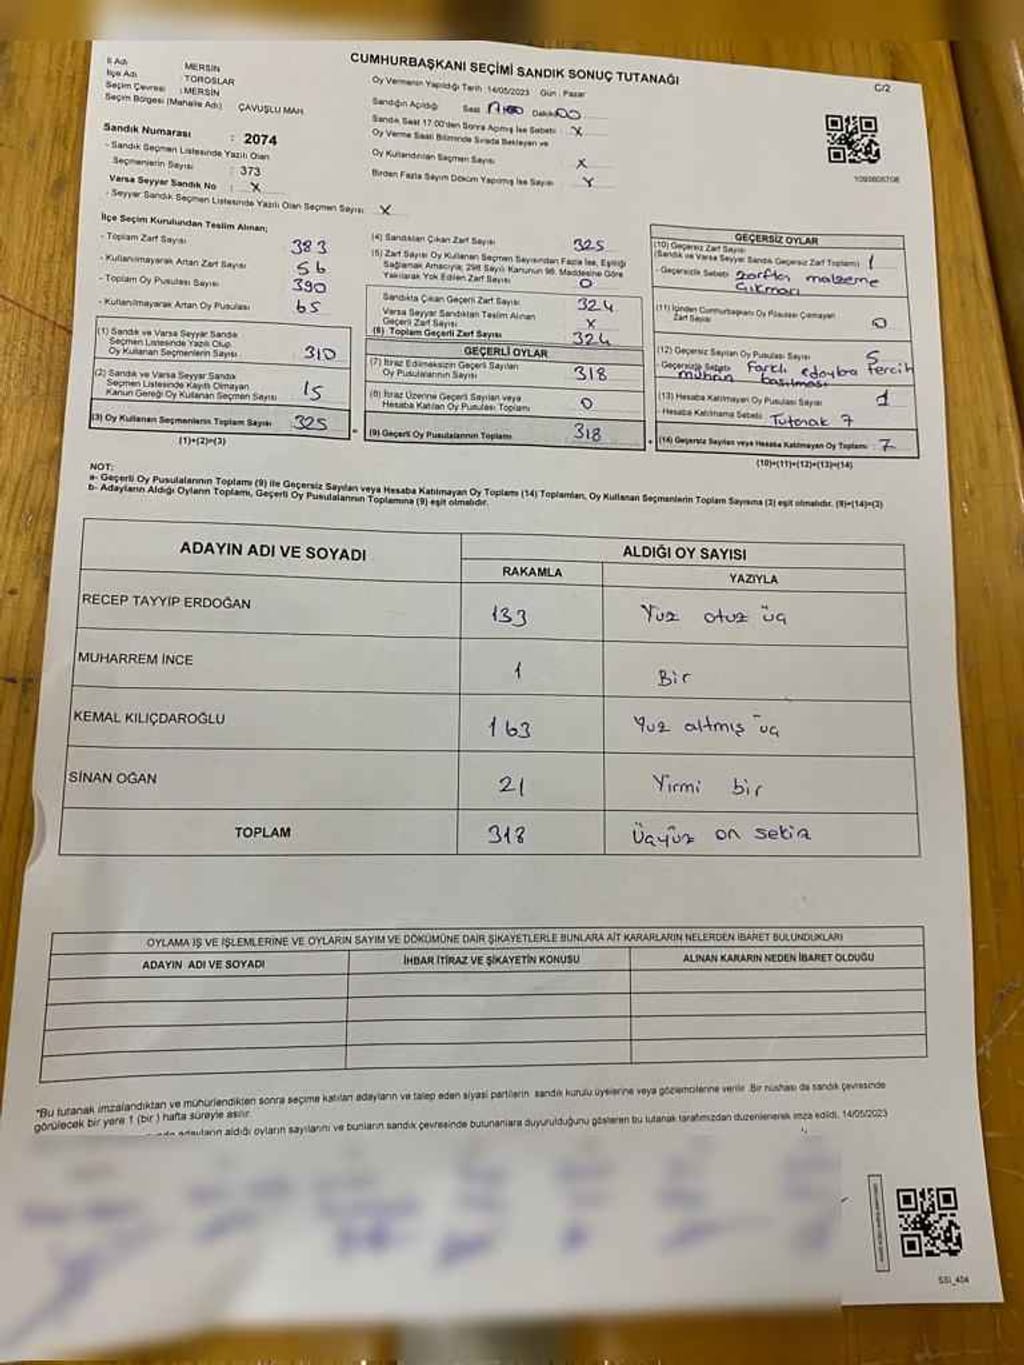 CUMHURBAŞKANI SEÇİMİ SANDIK SONUÇ TUTANAĞI
C/2
İl Adı MERSİN
İlçe Adı TOROSLAR
Seçim Çevresi : MERSİN
Seçim Bölgesi (Mahalle Adı) ÇAVUŞLU MAH.
Sandık Numarası : 2074
- Sandık Seçmen Listesinde Yazılı Olan
Seçmenlerin Sayısı : 373
Varsa Seyyar Sandık No : X
- Seyyar Sandık Seçmen Listesinde Yazılı Olan Seçmen Sayısı X
Oy Vermenin Yapıldığı Tarih : 14/05/2023 Gün : Pazar
Sandığın Açıldığı Saat Dakika 00
Sandık Saat 17.00'den Sonra Açılmış İse Sebebi : X
Oy Verme Saati Bitiminde Sırada Bekleyen ve
Oy Kullandırılan Seçmen Sayısı X
Birden Fazla Sayım Döküm Yapılmış İse Sayısı
İlçe Seçim Kurulundan Teslim Alınan;
- Toplam Zarf Sayısı 383
- Kullanılmayarak Artan Zarf Sayısı 56
- Toplam Oy Pusulası Sayısı 390
- Kullanılmayarak Artan Oy Pusulası 65
(1) Sandık ve Varsa Seyyar Sandık
Seçmen Listesinde Yazılı Olup
Oy Kullanan Seçmenlerin Sayısı 310
(2) Sandık ve Varsa Seyyar Sandık
Seçmen Listesinde Kayıtlı Olmayan
Kanun Gereği Oy Kullanan Seçmen Sayısı 15
(3) Oy Kullanan Seçmenlerin Toplam Sayısı 325
(1)+(2)=(3)
(4) Sandıktan Çıkan Zarf Sayısı 325
(5) Zarf Sayısı Oy Kullanan Seçmen Sayısından Fazla İse, Eşitliği
Sağlamak Amacıyla; 298 Sayılı Kanunun 98. Maddesine Göre
Yakılarak Yok Edilen Zarf Sayısı 0
Sandıkta Çıkan Geçerli Zarf Sayısı 324
Varsa Seyyar Sandıktan Teslim Alınan
Geçerli Zarf Sayısı X
(6) Toplam Geçerli Zarf Sayısı 324
GEÇERLİ OYLAR
(7) İtiraz Edilmeksizin Geçerli Sayılan
Oy Pusulalarının Sayısı 318
(8) İtiraz Üzerine Geçerli Sayılan veya
Hesaba Katılan Oy Pusulası Toplamı 0
(9) Geçerli Oy Pusulalarının Toplamı 318
GEÇERSİZ OYLAR
(10) Geçersiz Zarf Sayısı
(Sandık ve Varsa Seyyar Sandık Geçersiz Zarf Toplamı) 1
- Geçersizlik Sebebi zarftan malzeme
çıkması
(11) İçinden Cumhurbaşkanı Oy Pusulası Çıkmayan
Zarf Sayısı 0
(12) Geçersiz Sayılan Oy Pusulası Sayısı 5
- Geçersizlik Sebebi Farklı adayba tercih
mührün basılması
(13) Hesaba Katılmayan Oy Pusulası Sayısı 1
- Hesaba Katılmama Sebebi Tutanak 7
(14) Geçersiz Sayılan veya Hesaba Katılmayan Oy Toplamı : 7
(10)+(11)+(12)+(13)=(14)
NOT:
a- Geçerli Oy Pusulalarının Toplamı (9) ile Geçersiz Sayılan veya Hesaba Katılmayan Oy Toplamı (14) Toplamları, Oy Kullanan Seçmenlerin Toplam Sayısına (3) eşit olmalıdır. (9)+(14)=(3)
b- Adayların Aldığı Oyların Toplamı, Geçerli Oy Pusulalarının Toplamına (9) eşit olmalıdır.
ADAYIN ADI VE SOYADI ALDIĞI OY SAYISI
RAKAMLA YAZIYLA
RECEP TAYYİP ERDOĞAN 133 Yüz otuz üç
MUHARREM İNCE 1 Bir
KEMAL KILIÇDAROĞLU 163 Yüz altmış üç
SİNAN OĞAN 21 Yirmi bir
TOPLAM 318 Üçyüz on sekiz
OYLAMA İŞ VE İŞLEMLERİNE VE OYLARIN SAYIM VE DÖKÜMÜNE DAİR ŞİKAYETLERLE BUNLARA AİT KARARLARIN NELERDEN İBARET BULUNDUKLARI
ADAYIN ADI VE SOYADI İHBAR İTİRAZ VE ŞİKAYETİN KONUSU ALINAN KARARIN NEDEN İBARET OLDUĞU
*Bu tutanak imzalandıktan ve mühürlendikten sonra seçime katılan adayların ve talep eden siyasi partilerin sandık kurulu üyelerine veya gözlemcilerine verilir. Bir nüshası da sandık çevresinde
görülecek bir yere 1 (bir) hafta süreyle asılır.
adayların aldığı oyların sayılarını ve bunların sandık çevresinde bulunanlara duyurulduğunu gösteren bu tutanak tarafımızdan düzenlenerek imza edildi. 14/05/2023
SSI_404